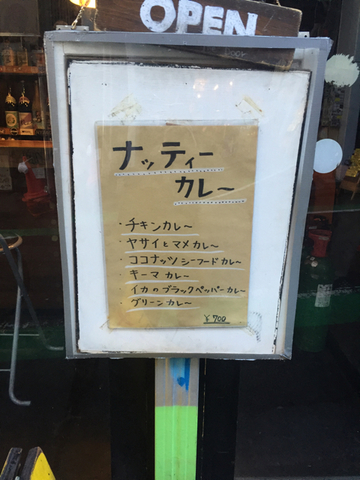 OPEN
ナッティー
カレー
・チキンカレー
・ヤサイとマメカレー
・ココナッツシーフードカレー
・キーマカレー
・イカのブラックペッパーカレー
・グリーンカレー
¥700